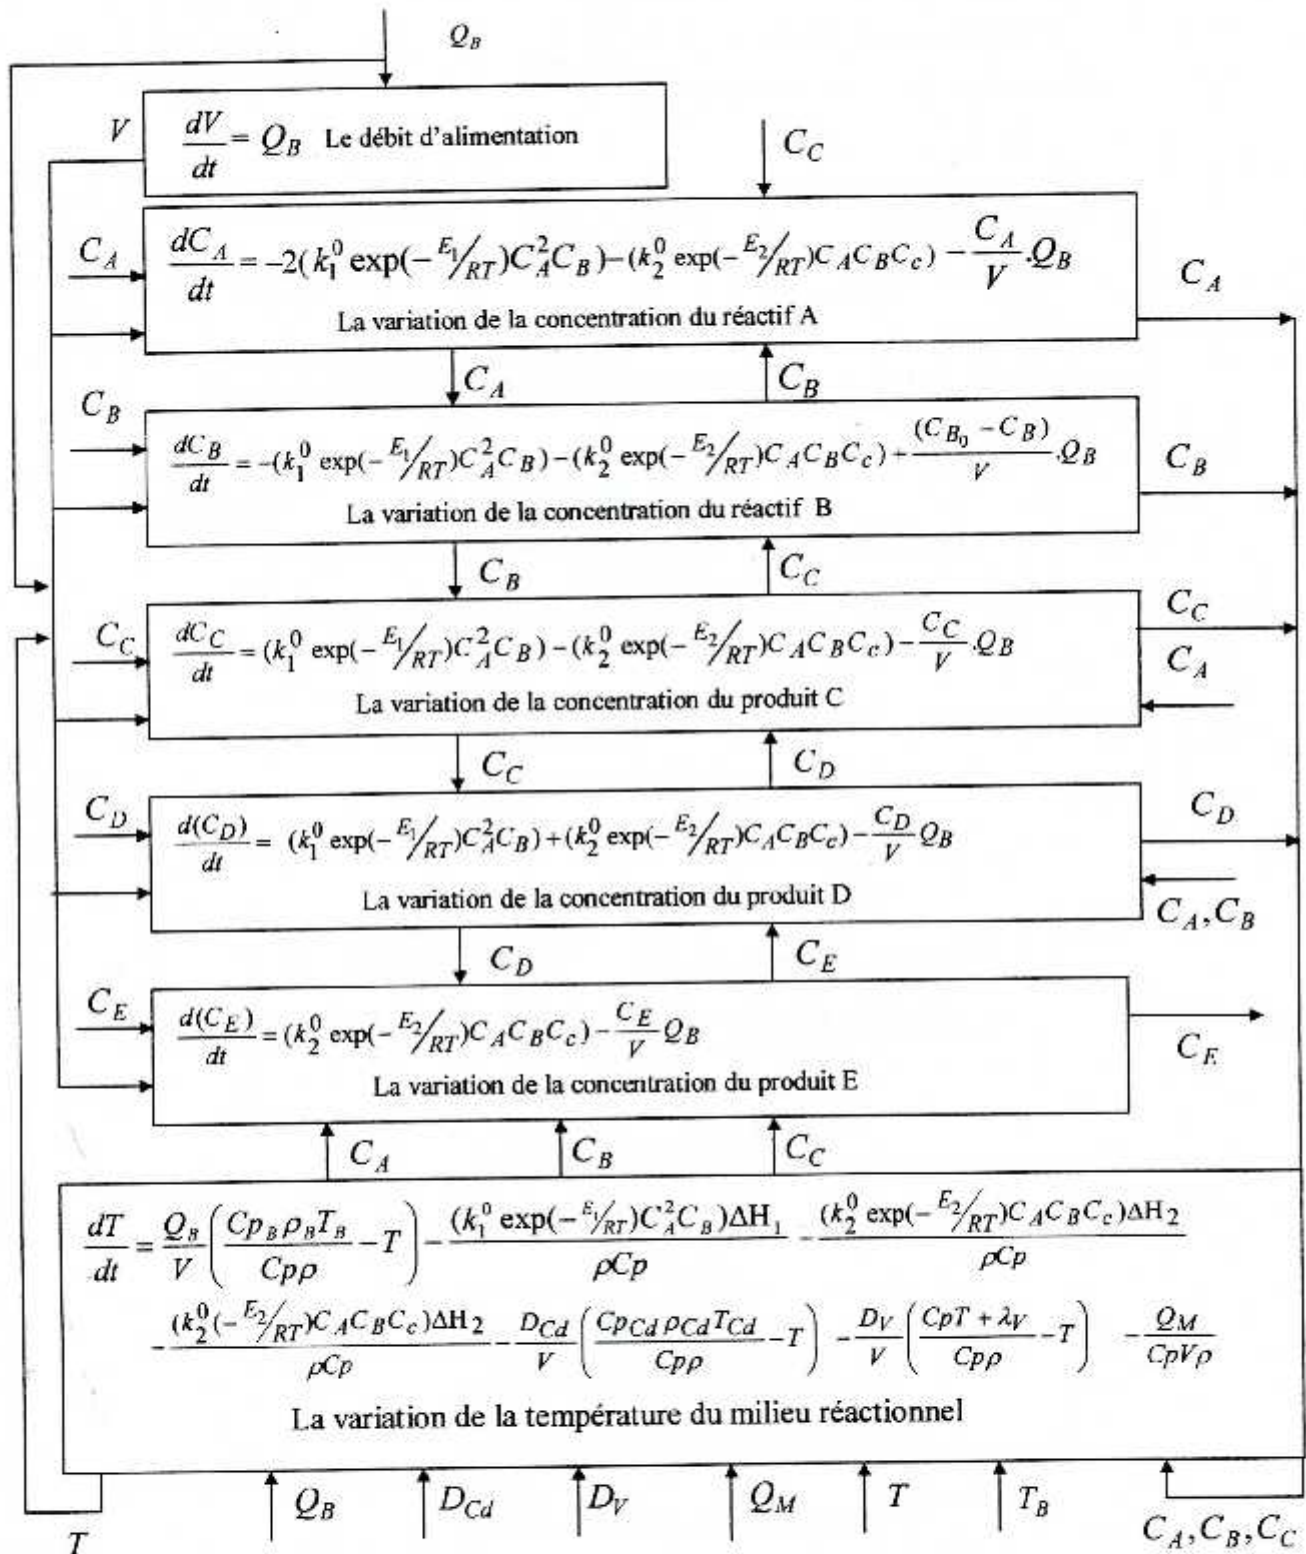 Q_B
V
dV/dt = Q_B Le débit d'alimentation
C_C
C_A
dC_A/dt = -2(k_1^0 exp(-E_1/RT)C_A^2 C_B)-(k_2^0 exp(-E_2/RT)C_A C_B C_c) - C_A/V .Q_B
C_A
La variation de la concentration du réactif A
C_A C_B
C_B
dC_B/dt = -(k_1^0 exp(-E_1/RT)C_A^2 C_B)-(k_2^0 exp(-E_2/RT)C_A C_B C_c)+ (C_{B_0} - C_B)/V .Q_B
C_B
La variation de la concentration du réactif B
C_B C_C
C_C
dC_C/dt = (k_1^0 exp(-E_1/RT)C_A^2 C_B)-(k_2^0 exp(-E_2/RT)C_A C_B C_c) - C_C/V .Q_B
C_C
C_A
La variation de la concentration du produit C
C_C C_D
C_D
d(C_D)/dt = (k_1^0 exp(-E_1/RT)C_A^2 C_B)+(k_2^0 exp(-E_2/RT)C_A C_B C_c) - C_D/V Q_B
C_D
La variation de la concentration du produit D
C_A, C_B
C_D C_E
C_E
d(C_E)/dt = (k_2^0 exp(-E_2/RT)C_A C_B C_c) - C_E/V Q_B
C_E
La variation de la concentration du produit E
C_A C_B C_C
dT/dt = Q_B/V (Cp_B ρ_B T_B/Cpρ - T) - (k_1^0 exp(-E_1/RT)C_A^2 C_B)ΔH_1/ρCp - (k_2^0 exp(-E_2/RT)C_A C_B C_c)ΔH_2/ρCp
- (k_2^0 (-E_2/RT)C_A C_B C_c)ΔH_2/ρCp - D_Cd/V (Cp_Cd ρ_Cd T_Cd/Cpρ - T) - D_V/V (CpT + λ_V/Cpρ - T) - Q_M/CpVρ
La variation de la température du milieu réactionnel
T Q_B D_Cd D_V Q_M T T_B C_A, C_B, C_C